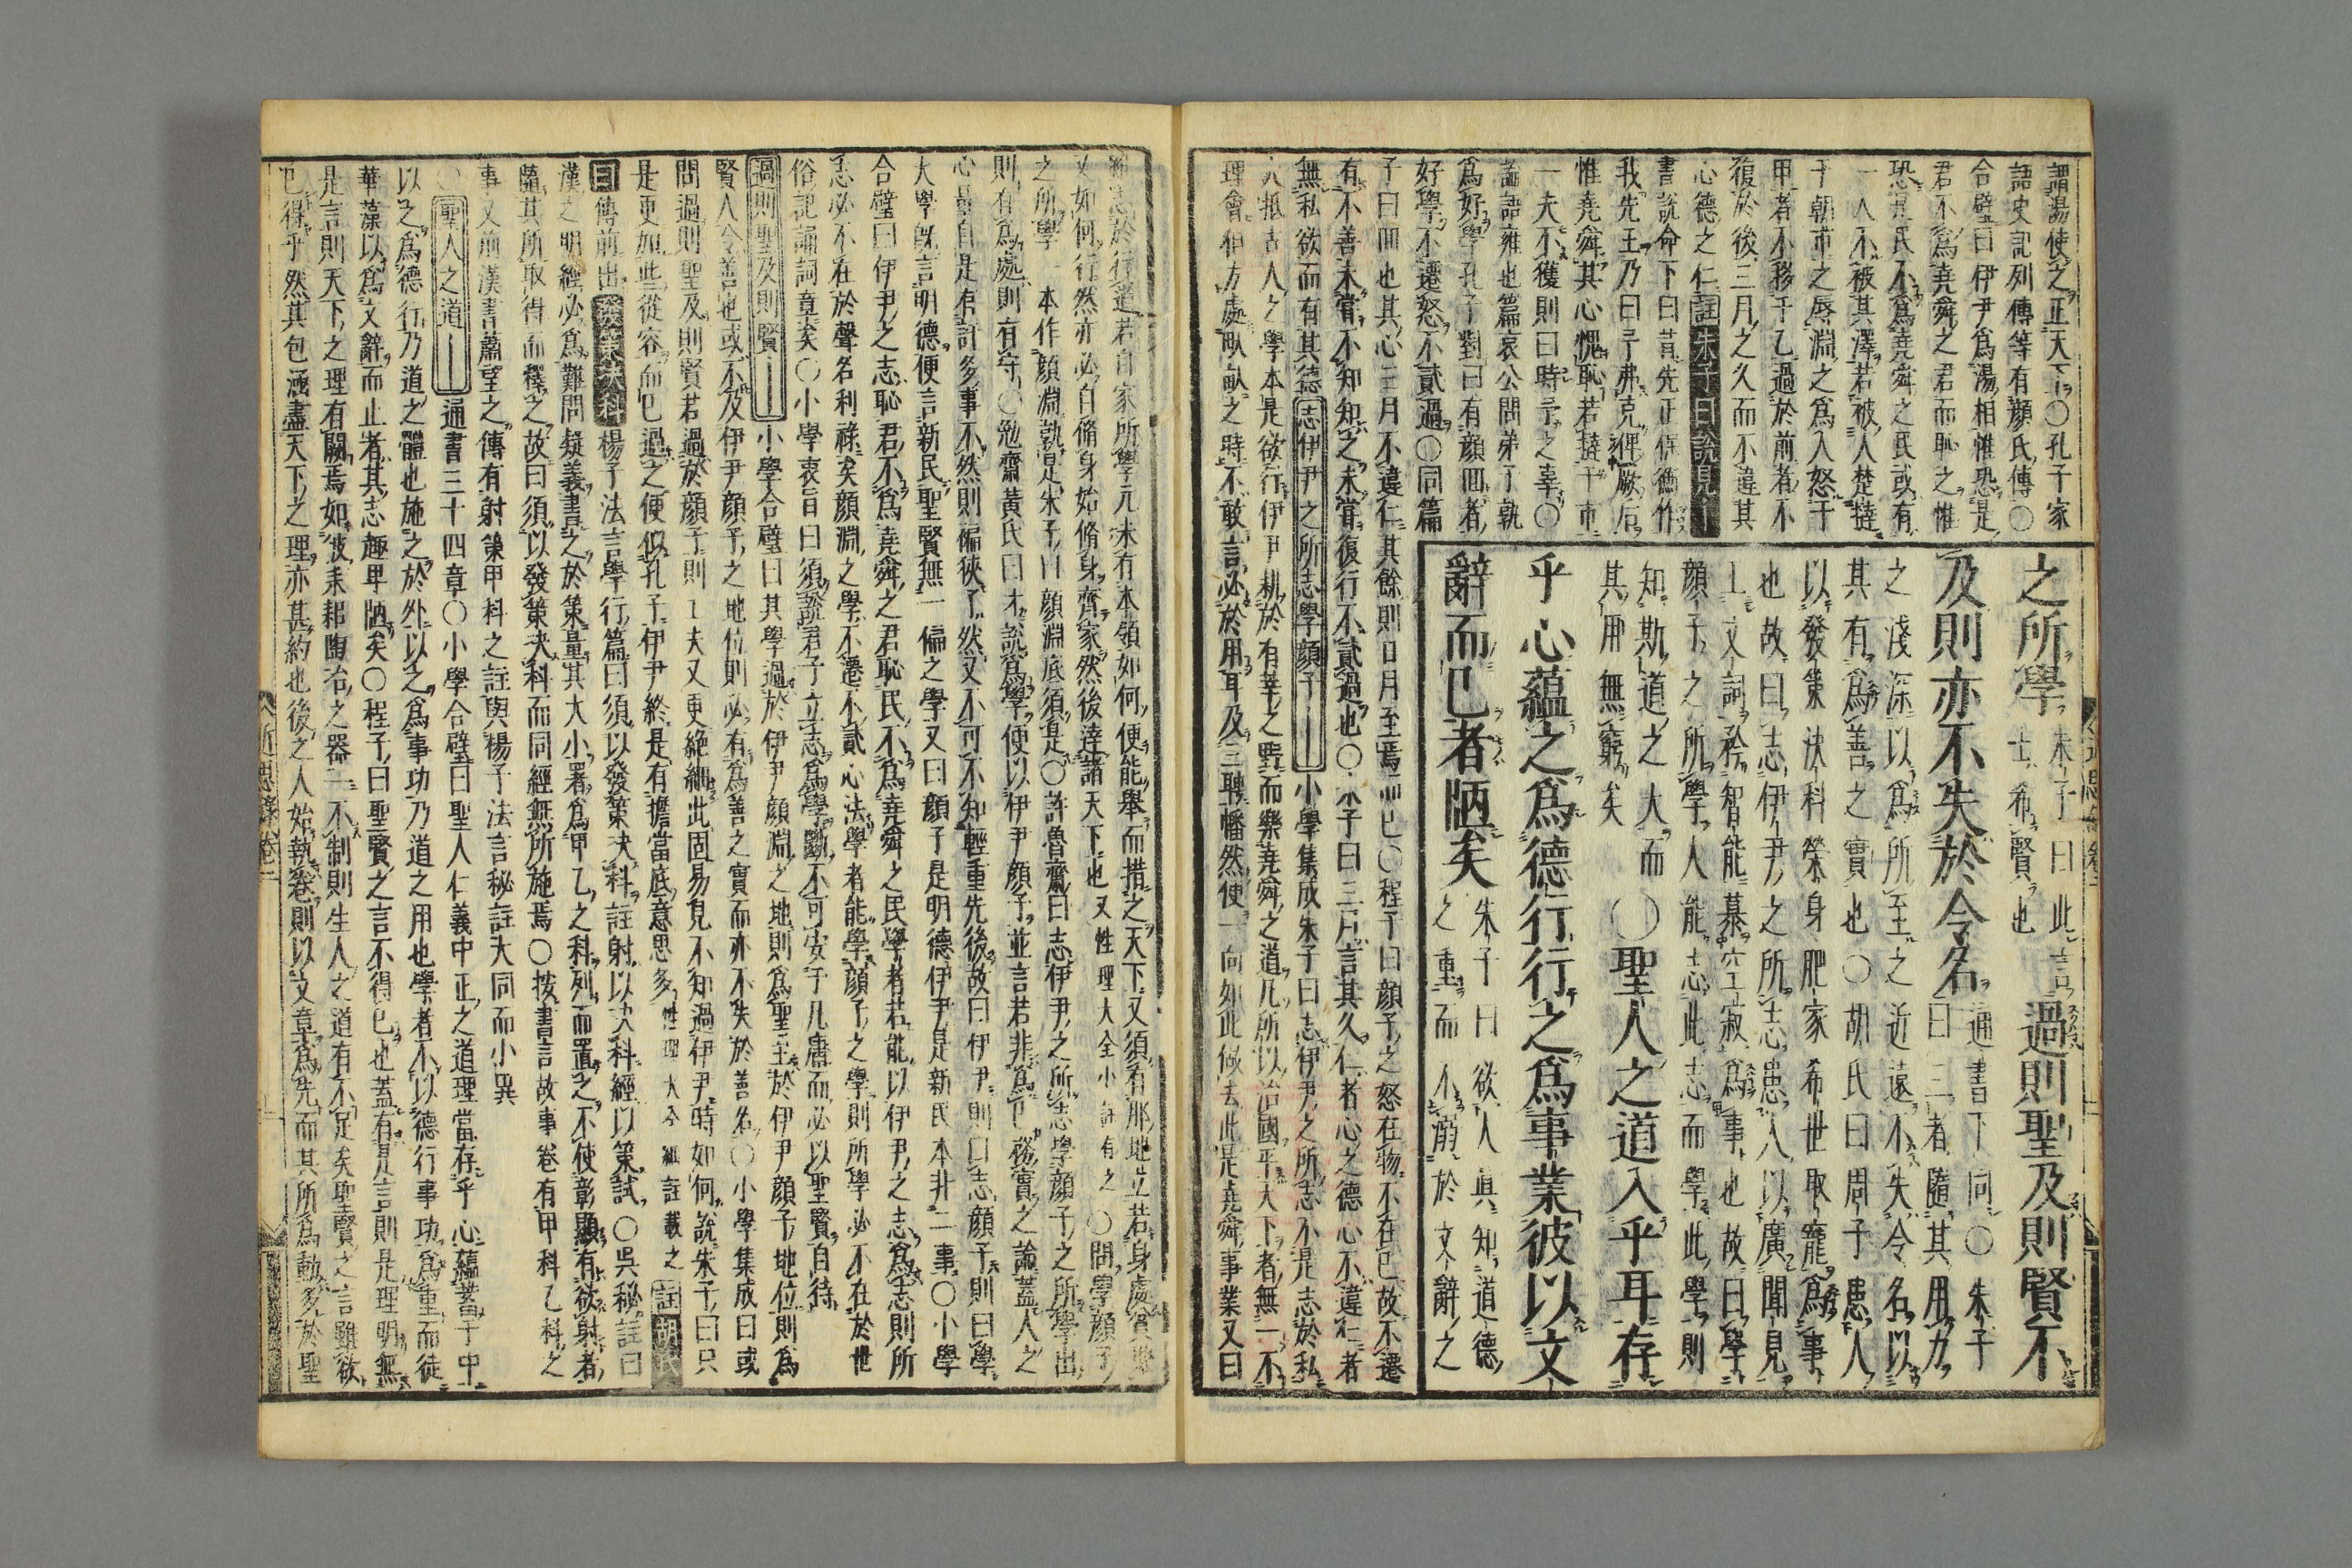 謂湯使之正天下○孔子家
語史記列傳等有顔氏傳○
合璧曰伊尹爲湯相惟恐是
君不爲堯舜之君而恥之惟
恐是民不爲堯舜之民或有
一人不被其澤若被人楚撻
于朝市之辱淵之爲人怒于
甲者不移于乙過於前者不
復於後三月之久而不違其
心德之仁註朱子曰說見
書說命下曰昔先正保衡作
我先王乃曰予弗克俾厥后
惟堯舜其心愧恥若撻于市
一夫不獲則曰時予之辜○
論語雍也篇哀公問弟子孰
爲好學孔子對曰有顔回者
好學不遷怒不貳過○同篇
子曰回也其心三月不違仁其餘則日月至焉而已○程子曰顔子之怒在物不在已故不遷
有不善未嘗不知知之未嘗復行不貳過也○朱子曰三月言其久仁者心之德心不違仁者
無私欲而有其德志伊尹之所志學顔子小學集成朱子曰志伊尹之所志不是志於私
大抵古人之學本是欲行伊尹耕於有莘之野而樂堯舜之道凡所以治國平天下者無一不
理會但方處畎畝之時不敢言必於用耳及三聘幡然便一向如此做去此是堯舜事業又曰
之所學朱子曰此言士希賢也過則聖及則賢不
及則亦不失於令名通書下同○朱子曰三者隨其用力
之淺深以爲所至之近遠不失令名以
其有爲善之實也○胡氏曰周子患人
以發策決科榮身肥家希世取寵爲事
也故曰志伊尹之所志患人以廣聞見
工文詞矜智能慕空寂爲事也故曰學
顔子之所學人能志此志而學此學則
知斯道之大而其用無窮矣○聖人之道入乎耳存
乎心蘊之爲德行行之爲事業彼以文
辭而已者陋矣朱子曰欲人眞知道德之重而不溺於文辭之
又如何行然亦必自脩身始脩身齊家然後達諸天下也又性理大全小註有之○問學顔子
之所學一本作顔淵孰是朱子曰顔淵底須是○許魯齋曰志伊尹之所志學顔子之所學出
則有爲處則有守○勉齋黃氏曰才說爲學便以伊尹顔子並言若非爲已務實之論蓋人之
心量自是有許多事不然則偏狹了然又不可不知輕重先後故曰伊尹則曰志顔子則曰學
大學旣言明德便言新民聖賢無一偏之學又曰顔子是明德伊尹是新民本非二事○小學
合璧曰伊尹之志恥君不爲堯舜之君恥民不爲堯舜之民學者若能以伊尹之志爲志則所
志必不在於聲名利祿矣顔淵之學不遷不貳心法學者能學顔子之學則所學必不在於世
俗記誦詞章矣○小學衷旨曰須說君子立志爲學斷不可安于凡庸而必以聖賢自待
過則聖及則賢小學合璧曰其學過於伊尹顔淵之地則爲聖至於伊尹顔子地位則爲
賢人令善也或不及伊尹顔子之地位則必有爲善之實而亦不失於善名○小學集成曰或
問過則聖及則賢若過於顔子則工夫又更絶細此固易見不知過伊尹時如何說朱子曰只
是更加些從容而已過之便似孔子伊尹終是有擔當底意思多性理大全細註載之註胡氏
曰傳前出發策決科楊子法言學行篇曰須以發策決科註射以決科經以策試○吳秘註曰
漢之明經必爲難問疑義書之於策量其大小署爲甲乙之科列而置之不使彰顯有欲射者
隨其所取得而釋之故曰須以發策決科而同經無所施焉○按書言故事卷有甲科乙科之
事又前漢書蕭望之傳有射策甲科之註與楊子法言秘註大同而小異
○聖人之道通書三十四章○小學合璧曰聖人仁義中正之道理當存乎心蘊蓄于中
以之爲德行乃道之體也施之於外以之爲事功乃道之用也學者不以德行事功爲重而徒
華藻以爲文辭而止者其志趣卑陋矣○程子曰聖賢之言不得已也蓋有是言則是理明無
是言則天下之理有闕焉如彼耒耜陶冶之器一不制則生人之道有不足矣聖賢之言雖欲
已得乎然其包涵盡天下之理亦甚約也後之人始執卷則以文章爲先而其所爲動多於聖